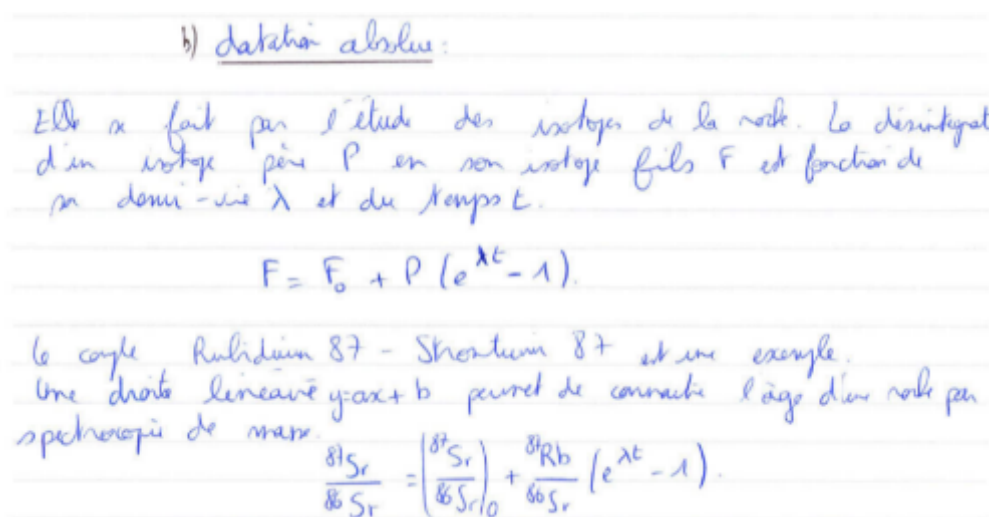 b) datation absolue:
Elle se fait par l'étude des isotopes de la roche. La désintégrat
d'un isotope père P en son isotope fils F est fonction de
sa demi-vie λ et du temps t.
F = F₀ + P (e^λt - 1).
Le couple Rubidium 87 - Strontium 87 est un exemple.
Une droite linéaire y=ax+b permet de connaitre l'âge d'une roche par
spectroscopie de masse.
⁸⁷Sr/⁸⁶Sr = (⁸⁷Sr/⁸⁶Sr)₀ + ⁸⁷Rb/⁸⁶Sr (e^λt - 1).